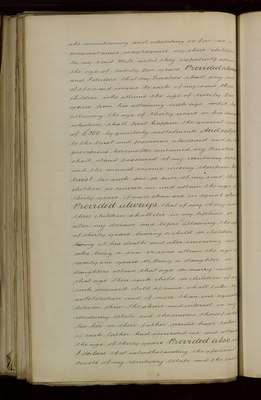 the maintaining and educating so far as
circumstances may require my three children
by my said Wife until they respectively attain
the age of twenty five years Provided always
and I declare that my Trustees shall pay out
of the said income to each of my said three
children who attains the age of twenty five
years from his attaining such age until he
attaining the age of thirty years or his
whichever shall first happen the annual sum
of £300 by quarterly instalments And subject
to the trust and provisions aforesaid and to the
provisions hereinafter contained my Trustees
shall stand possessed of my residuary estate
and the annual income arising therefrom In
trust for such one or more of my said three
children as survive me and attain the age of
thirty years if more than one in equal shares
Provided always that if any of my said
three children shall die in my lifetime or
after my decease and before attaining the age
of thirty years leaving a child or children
living at his death and who surviving me
who being a son or sons attain the age of
twenty one years or being a daughter or
daughters attain that age or marry under
that age then such child or children of
such deceased child of mine shall take by
substitution and if more than one equally
between them the share and interest in my
residuary estate and the income thereof which
his her or their father would have taken
if such father had survived me and attained
the age of thirty years Provided also and
I declare that notwithstanding the aforesaid
trusts of my residuary estate and the